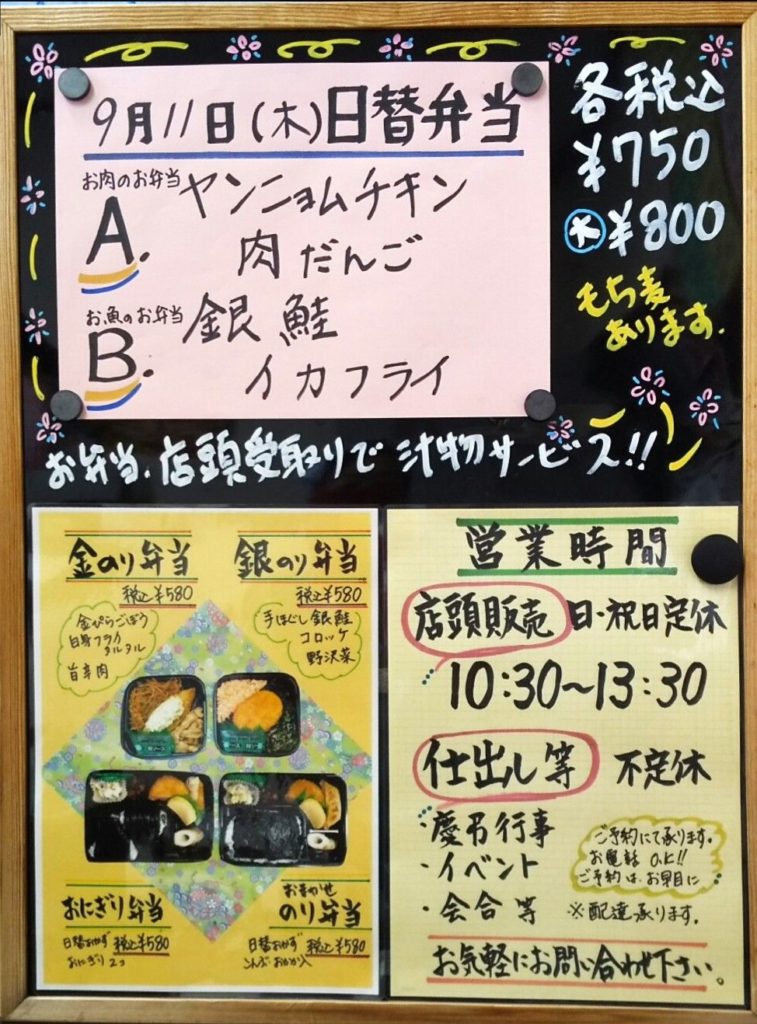 9月11日(木)日替弁当
お肉のお弁当
A.
ヤンニョムチキン
肉だんご
お魚のお弁当
B.
銀鮭
イカフライ
各税込
¥750
大 ¥800
もち麦
あります.
お弁当、店頭受取りで 汁物サービス!!
金のり弁当
税込¥580
金ぴらごぼう
白身フライ
タルタル
旨辛肉
銀のり弁当
税込¥580
手ほぐし銀鮭
コロッケ
野沢菜
おにぎり弁当
日替おかず 税込¥580
おにぎり2コ
おまかせ
のり弁当
日替おかず 税込¥580
こんぶ・おかか入
営業時間
店頭販売 日・祝日定休
10:30~13:30
仕出し等 不定休
・慶弔行事
・イベント
・会合等
ご予約にて承ります。
お電話OK!!
ご予約はお早目に
※配達承ります。
お気軽にお問い合わせ下さい。